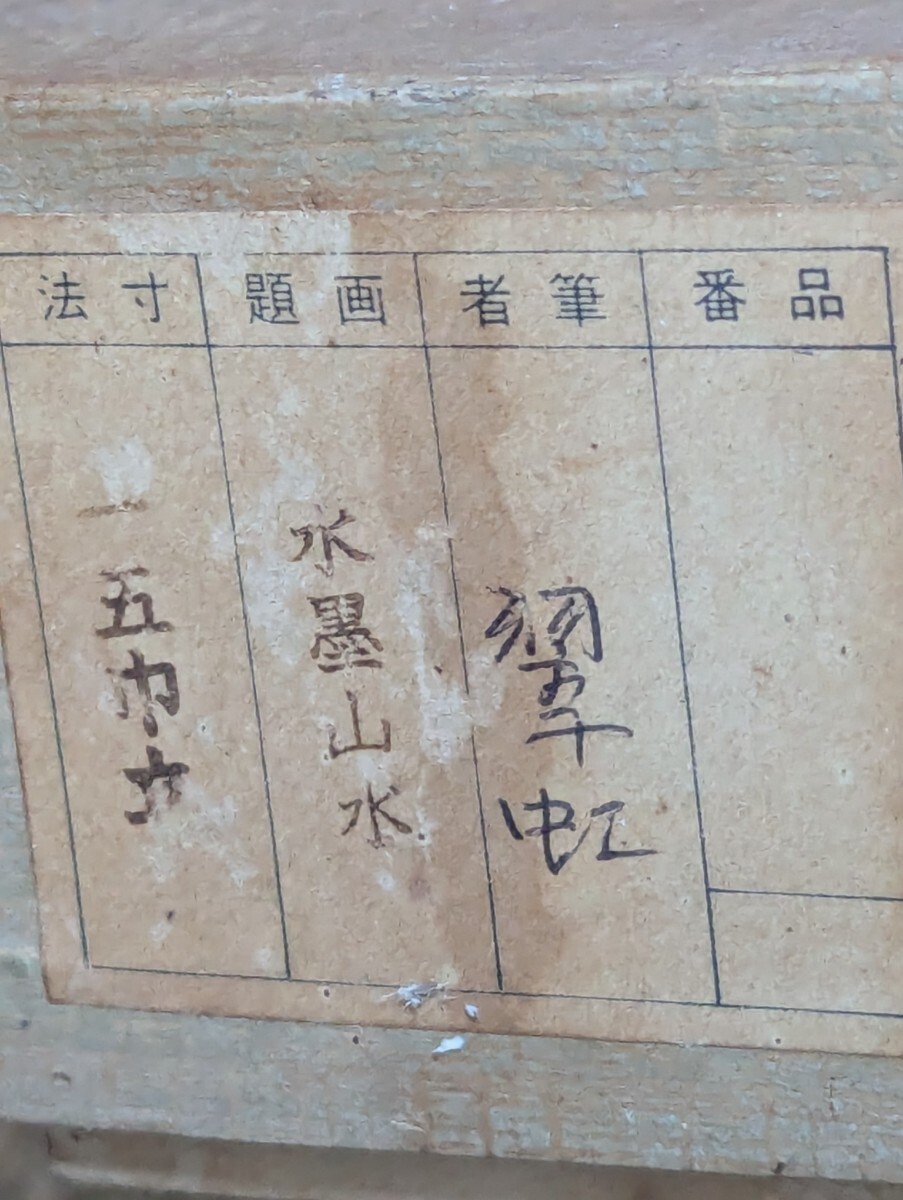 品番
筆者
翠虹
画題
水墨山水
寸法
一五巾立